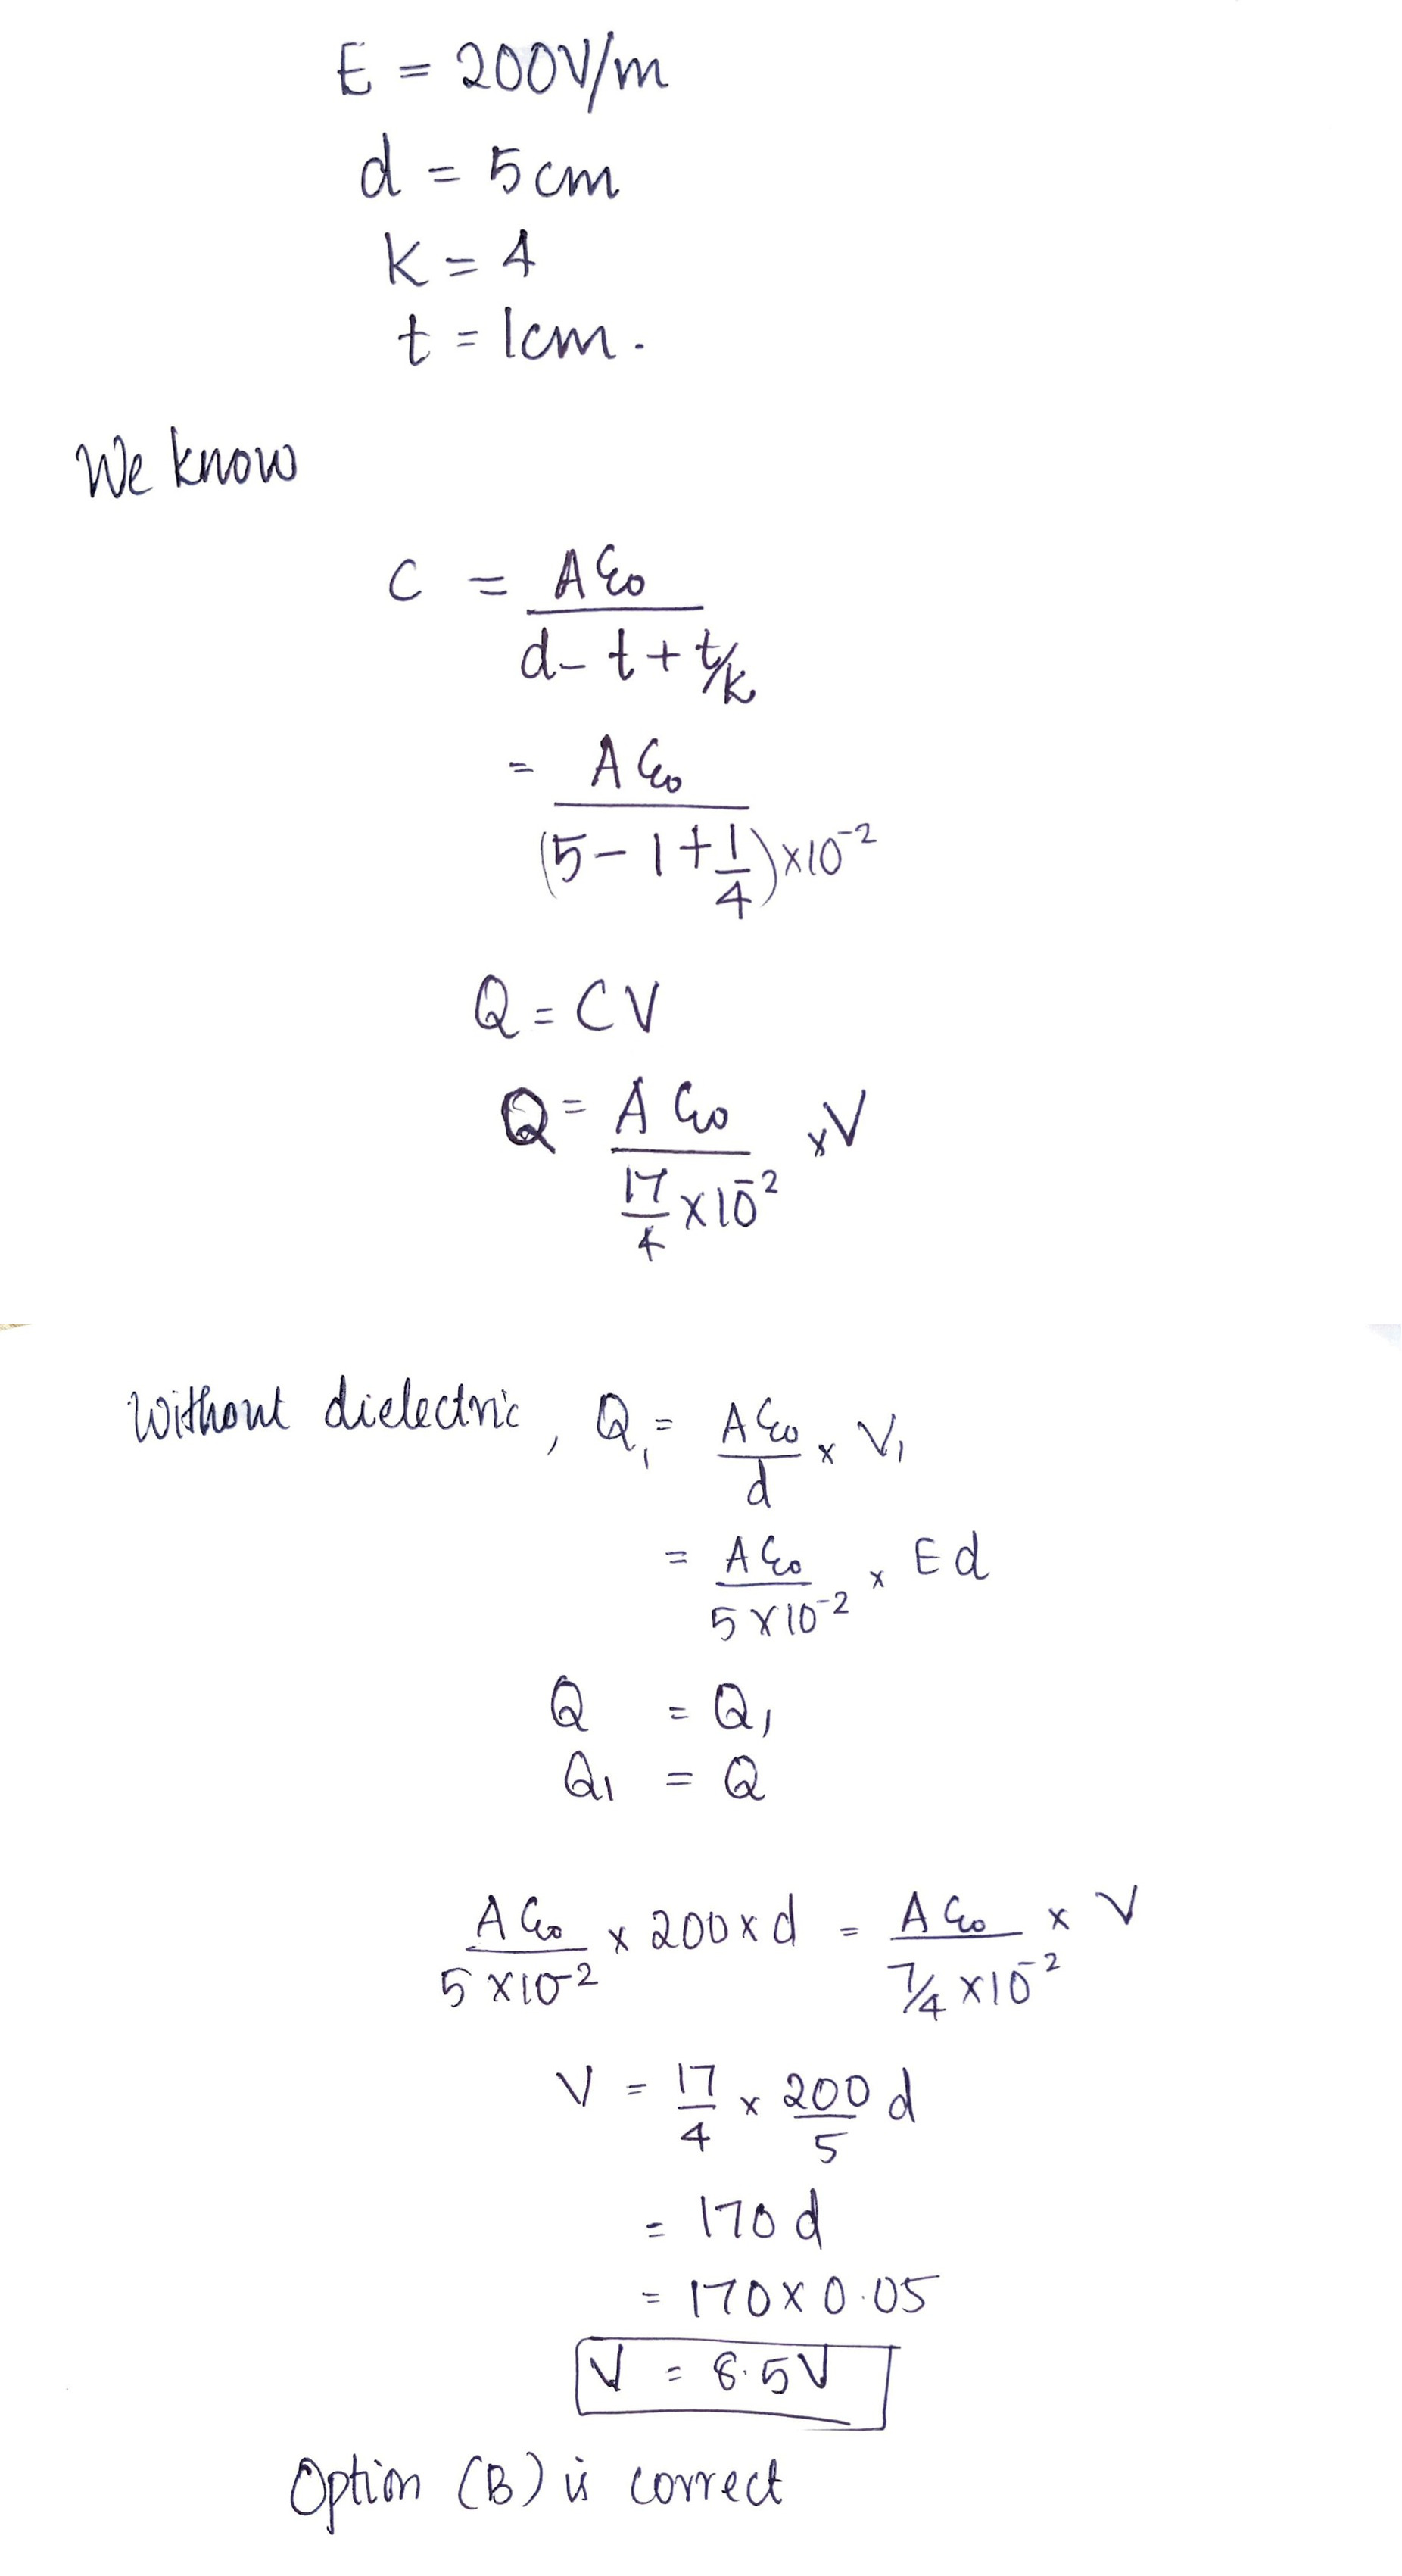 E = 200V/m
d = 5cm
K = 4
t = 1cm.
We know
C = Aε₀ / (d - t + t/k)
= Aε₀ / ((5 - 1 + 1/4) × 10⁻²)
Q = CV
Q = Aε₀ / (17/4 × 10⁻²) × V
Without dielectric, Q₁ = Aε₀/d × V₁
= Aε₀ / (5 × 10⁻²) × Ed
Q = Q₁
Q₁ = Q
Aε₀ / (5 × 10⁻²) × 200 × d = Aε₀ / (7/4 × 10⁻²) × V
V = 17/4 × 200/5 d
= 170 d
= 170 × 0.05
V = 8.5V
Option (B) is correct